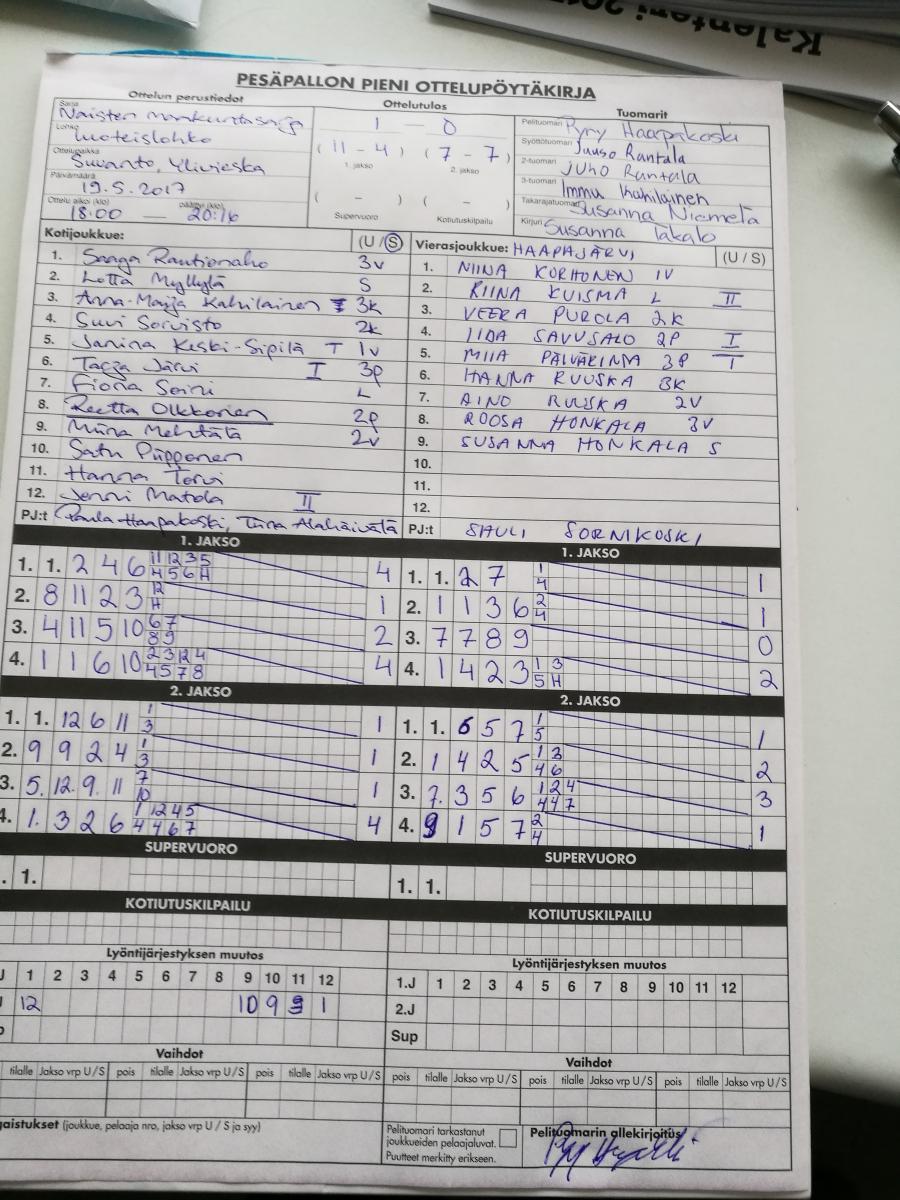 Kalenteri 201
PESÄPALLON PIENI OTTELUPÖYTÄKIRJA
Ottelun perustiedot
Ottelutulos
Tuomarit
Sarja
Naisten maakuntasarja
Lohko
Luoteislohko
Ottelupaikka
Suvanto, Ylivieska
Päivämäärä
19.5.2017
Ottelu alkoi (klo) päättyi (klo)
18:00 — 20:16
1 — 0
(11 - 4) (7 - 7)
1. jakso 2. jakso
( - ) ( - )
Supervuoro Kotiutuskilpailu
Pelituomari Pyry Haapakoski
Syöttötuomari Juuso Rantala
2-tuomari Juho Rantala
3-tuomari Immu Kahilainen
Takarajatuomari Susanna Niemelä
Kirjuri Susanna Takalo
Kotijoukkue: (U / S)
1. Saaga Rautionaho 3v
2. Lotta Myllylä S
3. Anna-Maija Kahilainen 3k
4. Suvi Sorvisto 2k
5. Janina Keski-Sipilä T 1v
6. Taija Järvi I 3p
7. Fiona Soini L
8. Reetta Olkkonen 2p
9. Miina Mehtätä 2v
10. Satu Piipponen
11. Hanna Torvi
12. Jenni Matola II
PJ:t Paula Haapakoski, Tiina Alahäivälä
Vierasjoukkue: HAAPAJÄRVI (U / S)
1. NIINA KORHONEN 1V
2. RIINA KUISMA L II
3. VEERA PUROLA 2K
4. IIDA SAVUSALO 2P I
5. MIIA PÄIVÄRINTA 3P T
6. HANNA RUUSKA 3K
7. AINO RUUSKA 2V
8. ROOSA HONKALA 3V
9. SUSANNA HONKALA S
10.
11.
12.
PJ:t SAULI SORNIKOSKI
1. JAKSO
1. 1. 2 4 6 11 12 3 5 4
H 5 6 H
2. 8 11 2 3 12 1
H
3. 4 11 5 10 6 7 2
8 9
4. 1 1 6 10 2 3 12 4 4
4 5 7 8
1. JAKSO
1. 1. 2 7 1 1
4
2. 1 1 3 6 2 1
4
3. 7 7 8 9 0
4. 1 4 2 3 1 3 2
5 H
2. JAKSO
1. 1. 12 6 11 1 1
3
2. 9 9 2 4 1 1
3
3. 5. 12. 9. 11 7 1
10
4. 1. 3 2 6 1 12 4 5 4
4 4 6 7
2. JAKSO
1. 1. 6 5 7 1 1
5
2. 1 4 2 5 1 3 2
4 6
3. 7. 3 5 6 1 2 4 3
4 4 7
4. 9 1 5 7 2 1
4
SUPERVUORO
. 1.
SUPERVUORO
1. 1.
KOTIUTUSKILPAILU
KOTIUTUSKILPAILU
Lyöntijärjestyksen muutos
J 1 2 3 4 5 6 7 8 9 10 11 12
12 10 9 1
Lyöntijärjestyksen muutos
1.J 1 2 3 4 5 6 7 8 9 10 11 12
2.J
Sup
Vaihdot
tilalle Jakso vrp U / S pois tilalle Jakso vrp U / S pois tilalle Jakso vrp U / S
Vaihdot
pois tilalle Jakso vrp U / S pois tilalle Jakso vrp U / S pois tilalle Jakso vrp U / S
gaistukset (joukkue, pelaaja nro, jakso vrp U / S ja syy)
Pelituomari tarkastanut
joukkueiden pelaajaluvat.
Puutteet merkitty erikseen.
Pelituomarin allekirjoitus